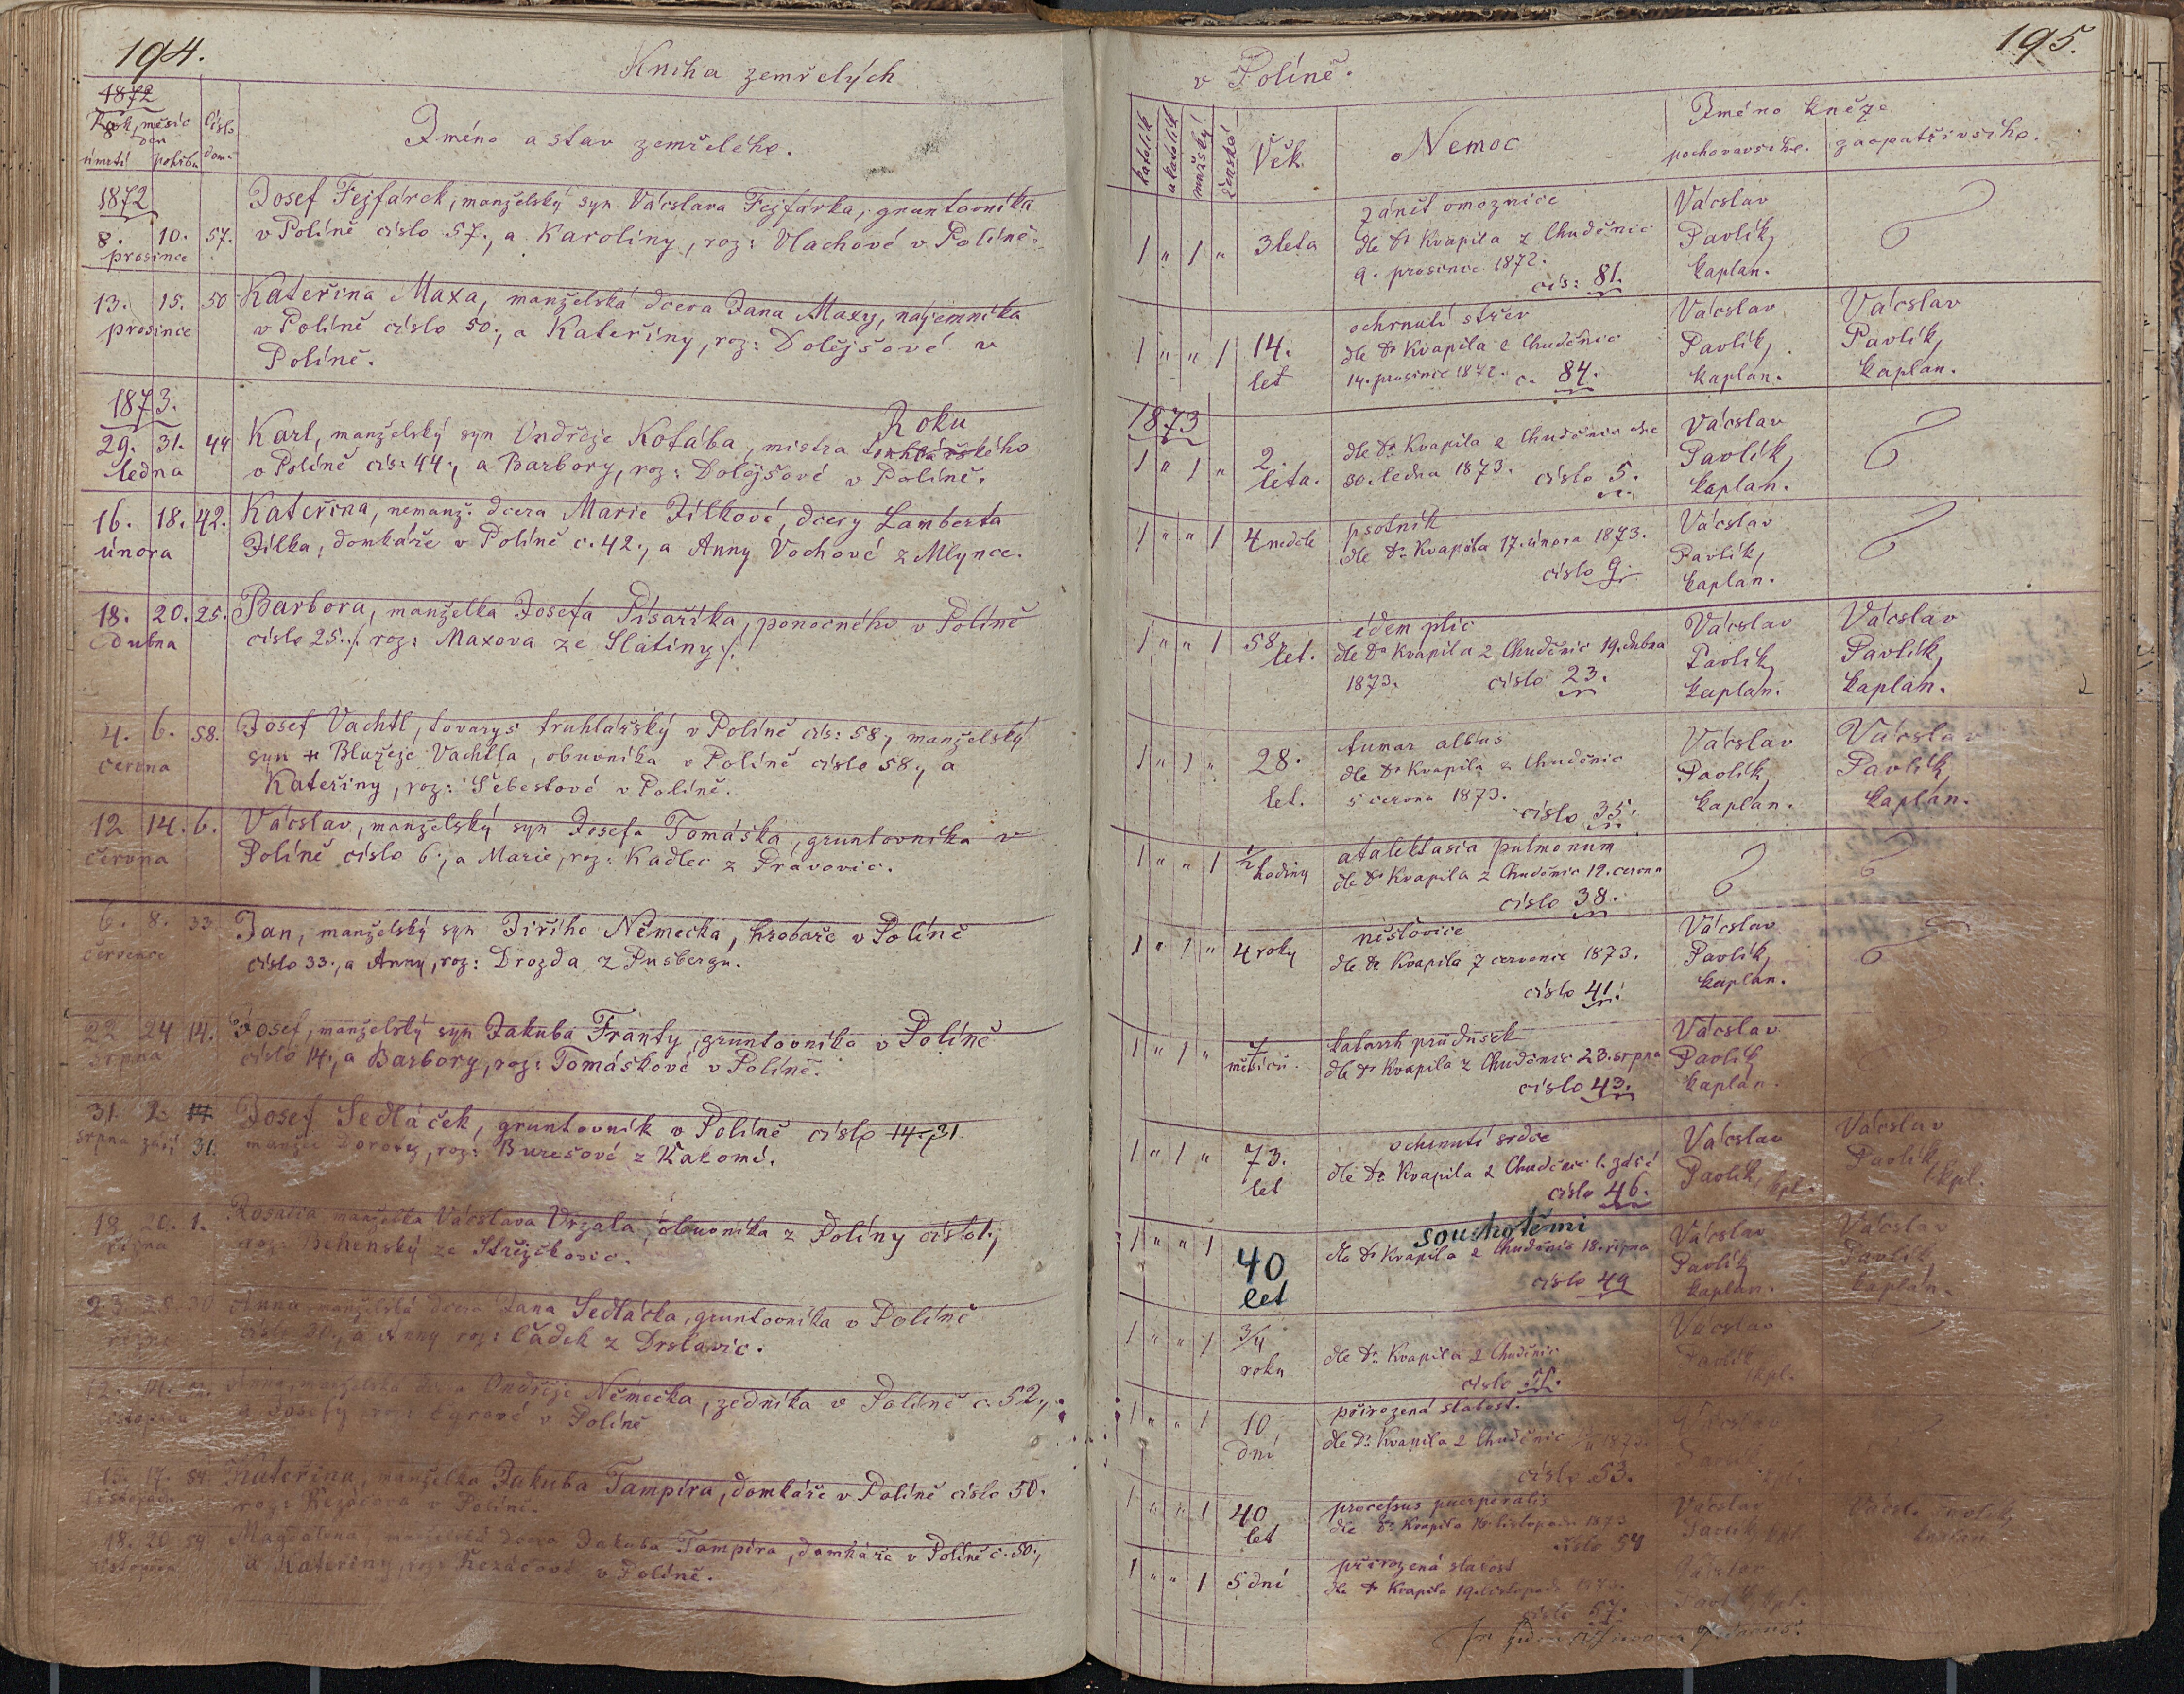 194.
Kniha zemřelých
1872
Rok, měsíc
den
číslo
úmrtí pohřbu dom.
Jméno a stav zemřelého.
1872
8. 10. 57.
prosince
Josef Fejfárek, manželský syn Václava Fejfárka, gruntovníka
v Políně číslo 57., a Karolíny, roz: Vlachové v Políně.
13. 15. 50
prosince
Kateřina Maxa, manželská dcera Jana Maxy, nájemníka
v Políně číslo 50., a Kateřiny, roz: Dolejšové v
Políně.
1873.
Roku
29. 31. 44
ledna
Karl, manželský syn Ondřeje Kotába, mistra truhlářského
v Políně čís: 44., a Barbory, roz: Dolejšové v Políně.
16. 18. 42.
února
Kateřina, nemanž: dcera Marie Jílkové, dcery Lamberta
Jílka, domkáře v Políně č. 42., a Anny Vochové z Mlynce.
18. 20. 25.
dubna
Barbora, manželka Josefa Písaříka, ponocného v Políně
číslo 25./. roz: Maxova ze Slatiny /.
4. 6. 58.
června
Josef Vachtl, tovaryš truhlářský v Políně čís: 58., manželský
syn + Blažeje Vachtla, obuvníka v Políně číslo 58., a
Kateřiny, roz: Šebestové v Políně.
12 14. 6.
června
Václav, manželský syn Josefa Tomáška, gruntovníka v
Políně číslo 6., a Marie, roz: Kadlec z Pravovic.
6. 8. 33
července
Jan, manželský syn Jiřího Němečka, hrobaře v Políně
číslo 33., a Anny, roz: Drozda z Pusbergu.
22 24 14.
srpna
Josef, manželský syn Jakuba Franty, gruntovníka v Políně
číslo 14., a Barbory, roz: Tomáškové v Políně.
31. 2. 14
srpna září 31.
Josef Sedláček, gruntovník v Políně číslo 14., 31
manžel Doroty, roz: Burešové z Kakome.
18 20. 1.
října
Rosalia, manželka Václava Vrzala, obuvníka z Políny číslo 1.,
roz: Behenský ze Střížkovic.
23 25. 30
října
Anna, manželská dcera Jana Sedláčka, gruntovníka v Políně
číslo 30., a Anny roz: Čádek z Drslavic.
12. 14. 52.
listopadu
Anna, manželská dcera Ondřeje Němečka, zedníka v Políně č. 52.,
a Josefy v Políně
15. 17. 50.
listopadu
Kateřina, manželka Jakuba Tampíra, domkáře v Políně číslo 50.
roz: Řezáčova v Políně.
18. 20 50
listopadu
Magdalena, manželská dcera Jakuba Tampíra, domkáře v Políně č. 50.,
a Kateřiny, roz: Řezáčové v Políně.
195.
v Políně.
katolík
akatolík
mužský
ženský
Věk
Nemoc
Jméno kněze
pochovavšího. zaopatřivšího.
1 " 1 " 3 léta
zánět omoznice
dle Dr Kvapila z Chuděnic
9. prosince 1872.
čís: 81.
Václav
Pavlík,
kaplan.
1 " " 1 14.
let
ochrnutí střev
dle Dr Kvapila z Chuděnic
14. prosince 1872. č. 84.
Václav
Pavlík,
kaplan.
Václav
Pavlík,
kaplan.
1873
1 " 1 " 2
léta.
dle Dr Kvapila z Chuděnic dne
30. ledna 1873. číslo 5.
Václav
Pavlík,
kaplan.
1 " " 1 4 neděle
psotník
dle Dr Kvapila 17. února 1873.
číslo 9.
Václav
Pavlík,
kaplan.
1 " " 1 58
let.
édem plic
dle Dr Kvapila z Chuděnic 19. dubna
1873. číslo 23.
Václav
Pavlík,
kaplan.
Václav
Pavlík,
kaplan.
1 " 1 " 28.
let.
tumor albus
dle Dr Kvapila z Chuděnic
5 června 1873.
číslo 35.
Václav
Pavlík,
kaplan.
Václav
Pavlík,
kaplan.
1 " " 1 ½ hodiny
atalektasia pulmonum
dle Dr Kvapila z Chuděnic 12. června
číslo 38.
1 " 1 " 4 roky
neštovice
dle Dr Kvapila 7 července 1873.
číslo 41.
Václav
Pavlík,
kaplan.
1 " 1 " 7
měsíců.
katarrh průdušek
dle Dr Kvapila z Chuděnic 23. srpna
číslo 43.
Václav
Pavlík,
kaplan.
1 " 1 " 73.
let
ochrnutí srdce
dle Dr Kvapila z Chuděnic 1. září
číslo 46.
Václav
Pavlík, kpl.
Václav
Pavlík, kpl.
1 " " 1 40
let
souchotěmi
dle Dr Kvapila z Chuděnic 18. října
číslo 49
Václav
Pavlík,
kaplan.
Václav
Pavlík,
kaplan.
1 " " 1 3/4
roku
dle Dr Kvapila z Chuděnic
číslo 51.
Václav
Pavlík
kpl.
1 " " 1 10
dní
přirozená slabost.
dle Dr Kvapila z Chuděnic
číslo 53.
Václav
Pavlík
kpl.
1 " " 1 40
let
processus puerperalis
dle Dr Kvapila 16. listopadu 1873
číslo 54
Václav
Pavlík kpl.
Václ. Pavlík
kaplan
1 " " 1 5 dní
přirozená slabost
dle Dr Kvapila 19. listopadu 1873.
číslo 57.
Václav
Pavlík kpl.